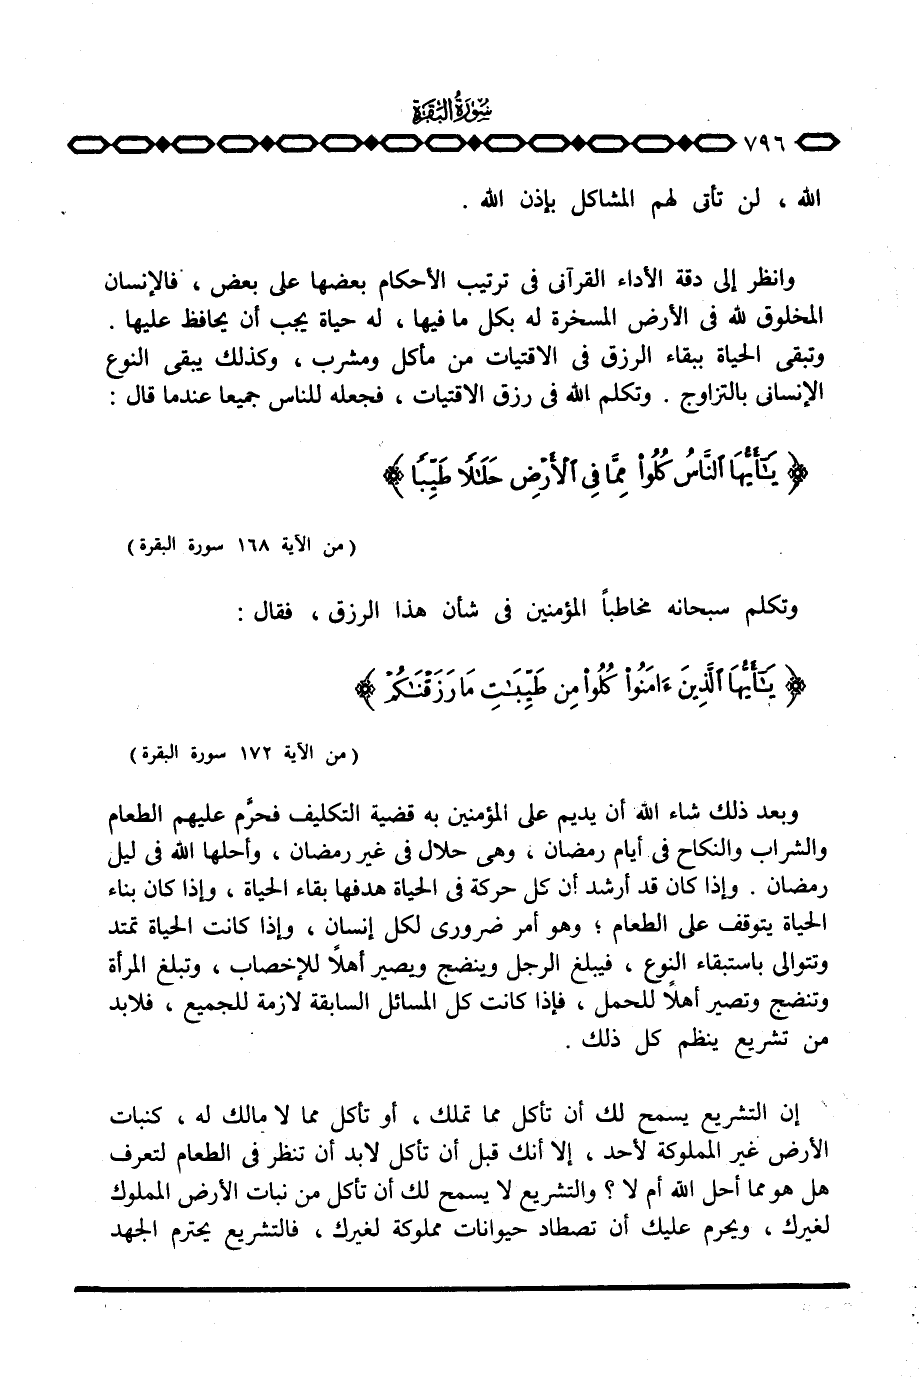 سورة البقرة
٧٩٦
الله ، لن تأتى لهم المشاكل بإذن الله .
وانظر إلى دقة الأداء القرآنى فى ترتيب الأحكام بعضها على بعض ، فالإنسان
المخلوق لله فى الأرض المسخرة له بكل ما فيها ، له حياة يجب أن يحافظ عليها .
وتبقى الحياة ببقاء الرزق فى الاقتيات من مأكل ومشرب ، وكذلك يبقى النوع
الإنسانى بالتزاوج . وتكلم الله فى رزق الاقتيات ، فجعله للناس جميعا عندما قال :
﴿ يَٰٓأَيُّهَا ٱلنَّاسُ كُلُوا۟ مِمَّا فِى ٱلْأَرْضِ حَلَٰلًا طَيِّبًا ﴾
( من الآية ١٦٨ سورة البقرة )
وتكلم سبحانه مخاطباً المؤمنين فى شأن هذا الرزق ، فقال :
﴿ يَٰٓأَيُّهَا ٱلَّذِينَ ءَامَنُوا۟ كُلُوا۟ مِن طَيِّبَٰتِ مَا رَزَقْنَٰكُمْ ﴾
( من الآية ١٧٢ سورة البقرة )
وبعد ذلك شاء الله أن يديم على المؤمنين به قضية التكليف فحرَّم عليهم الطعام
والشراب والنكاح فى أيام رمضان ، وهى حلال فى غير رمضان ، وأحلها الله فى ليل
رمضان . وإذا كان قد أرشد أن كل حركة فى الحياة هدفها بقاء الحياة ، وإذا كان بناء
الحياة يتوقف على الطعام ؛ وهو أمر ضرورى لكل إنسان ، وإذا كانت الحياة تمتد
وتتوالى باستبقاء النوع ، فيبلغ الرجل وينضج ويصير أهلاً للإخصاب ، وتبلغ المرأة
وتنضج وتصير أهلاً للحمل ، فإذا كانت كل المسائل السابقة لازمة للجميع ، فلابد
من تشريع ينظم كل ذلك .
إن التشريع يسمح لك أن تأكل مما تملك ، أو تأكل مما لا مالك له ، كنبات
الأرض غير المملوكة لأحد ، إلا أنك قبل أن تأكل لابد أن تنظر فى الطعام لتعرف
هل هو مما أحل الله أم لا ؟ والتشريع لا يسمح لك أن تأكل من نبات الأرض المملوك
لغيرك ، ويحرم عليك أن تصطاد حيوانات مملوكة لغيرك ، فالتشريع يحترم الجهد